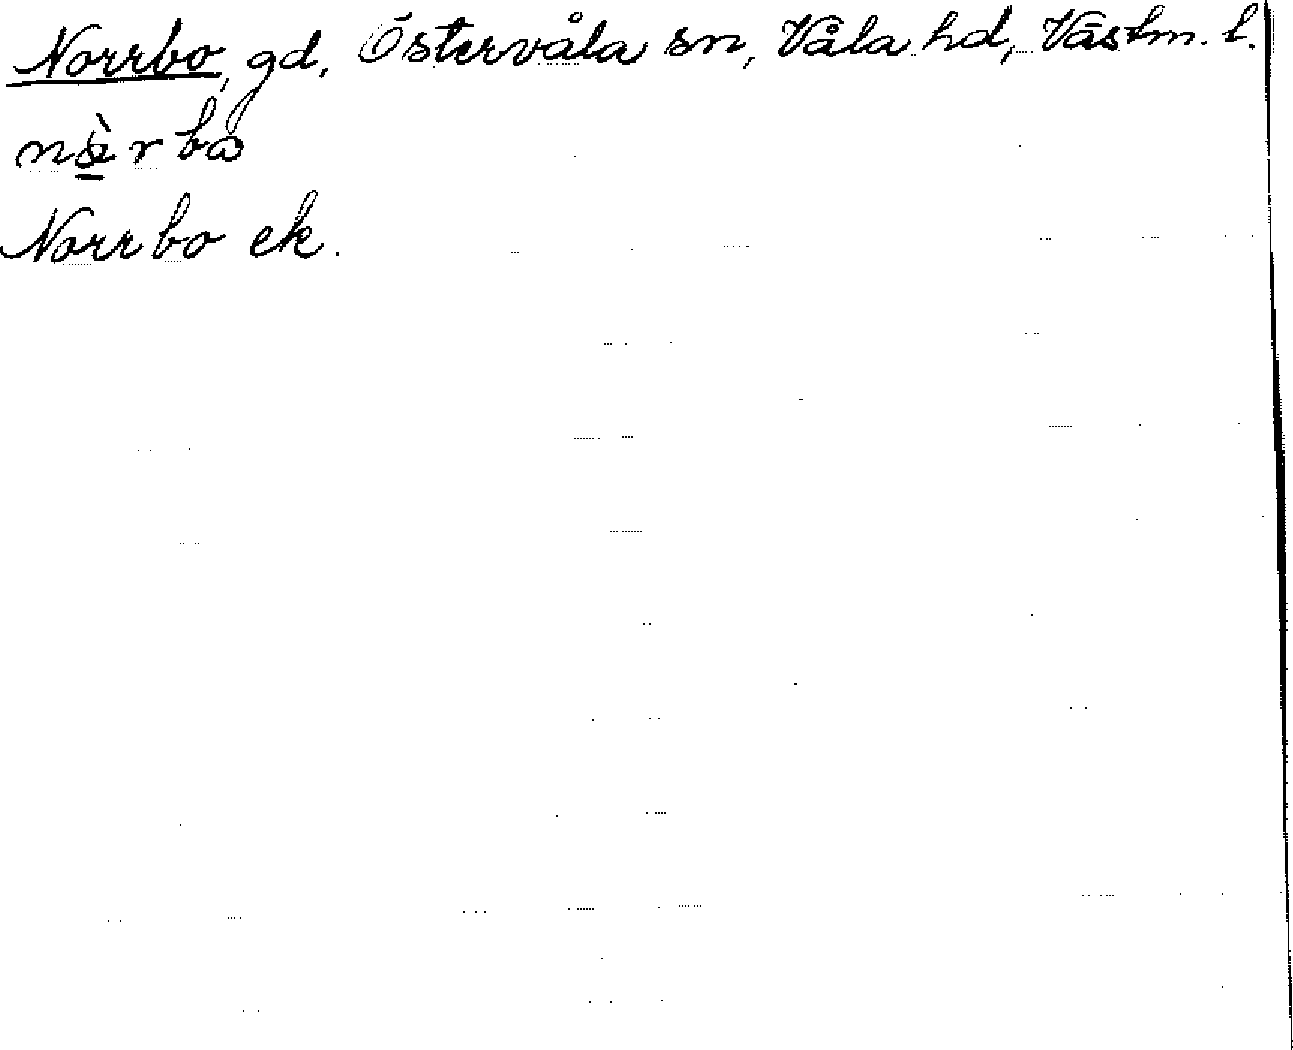 Norrbo, gd, Östervåla sn, Våla hd, Västm. l.
Norrbo ek.